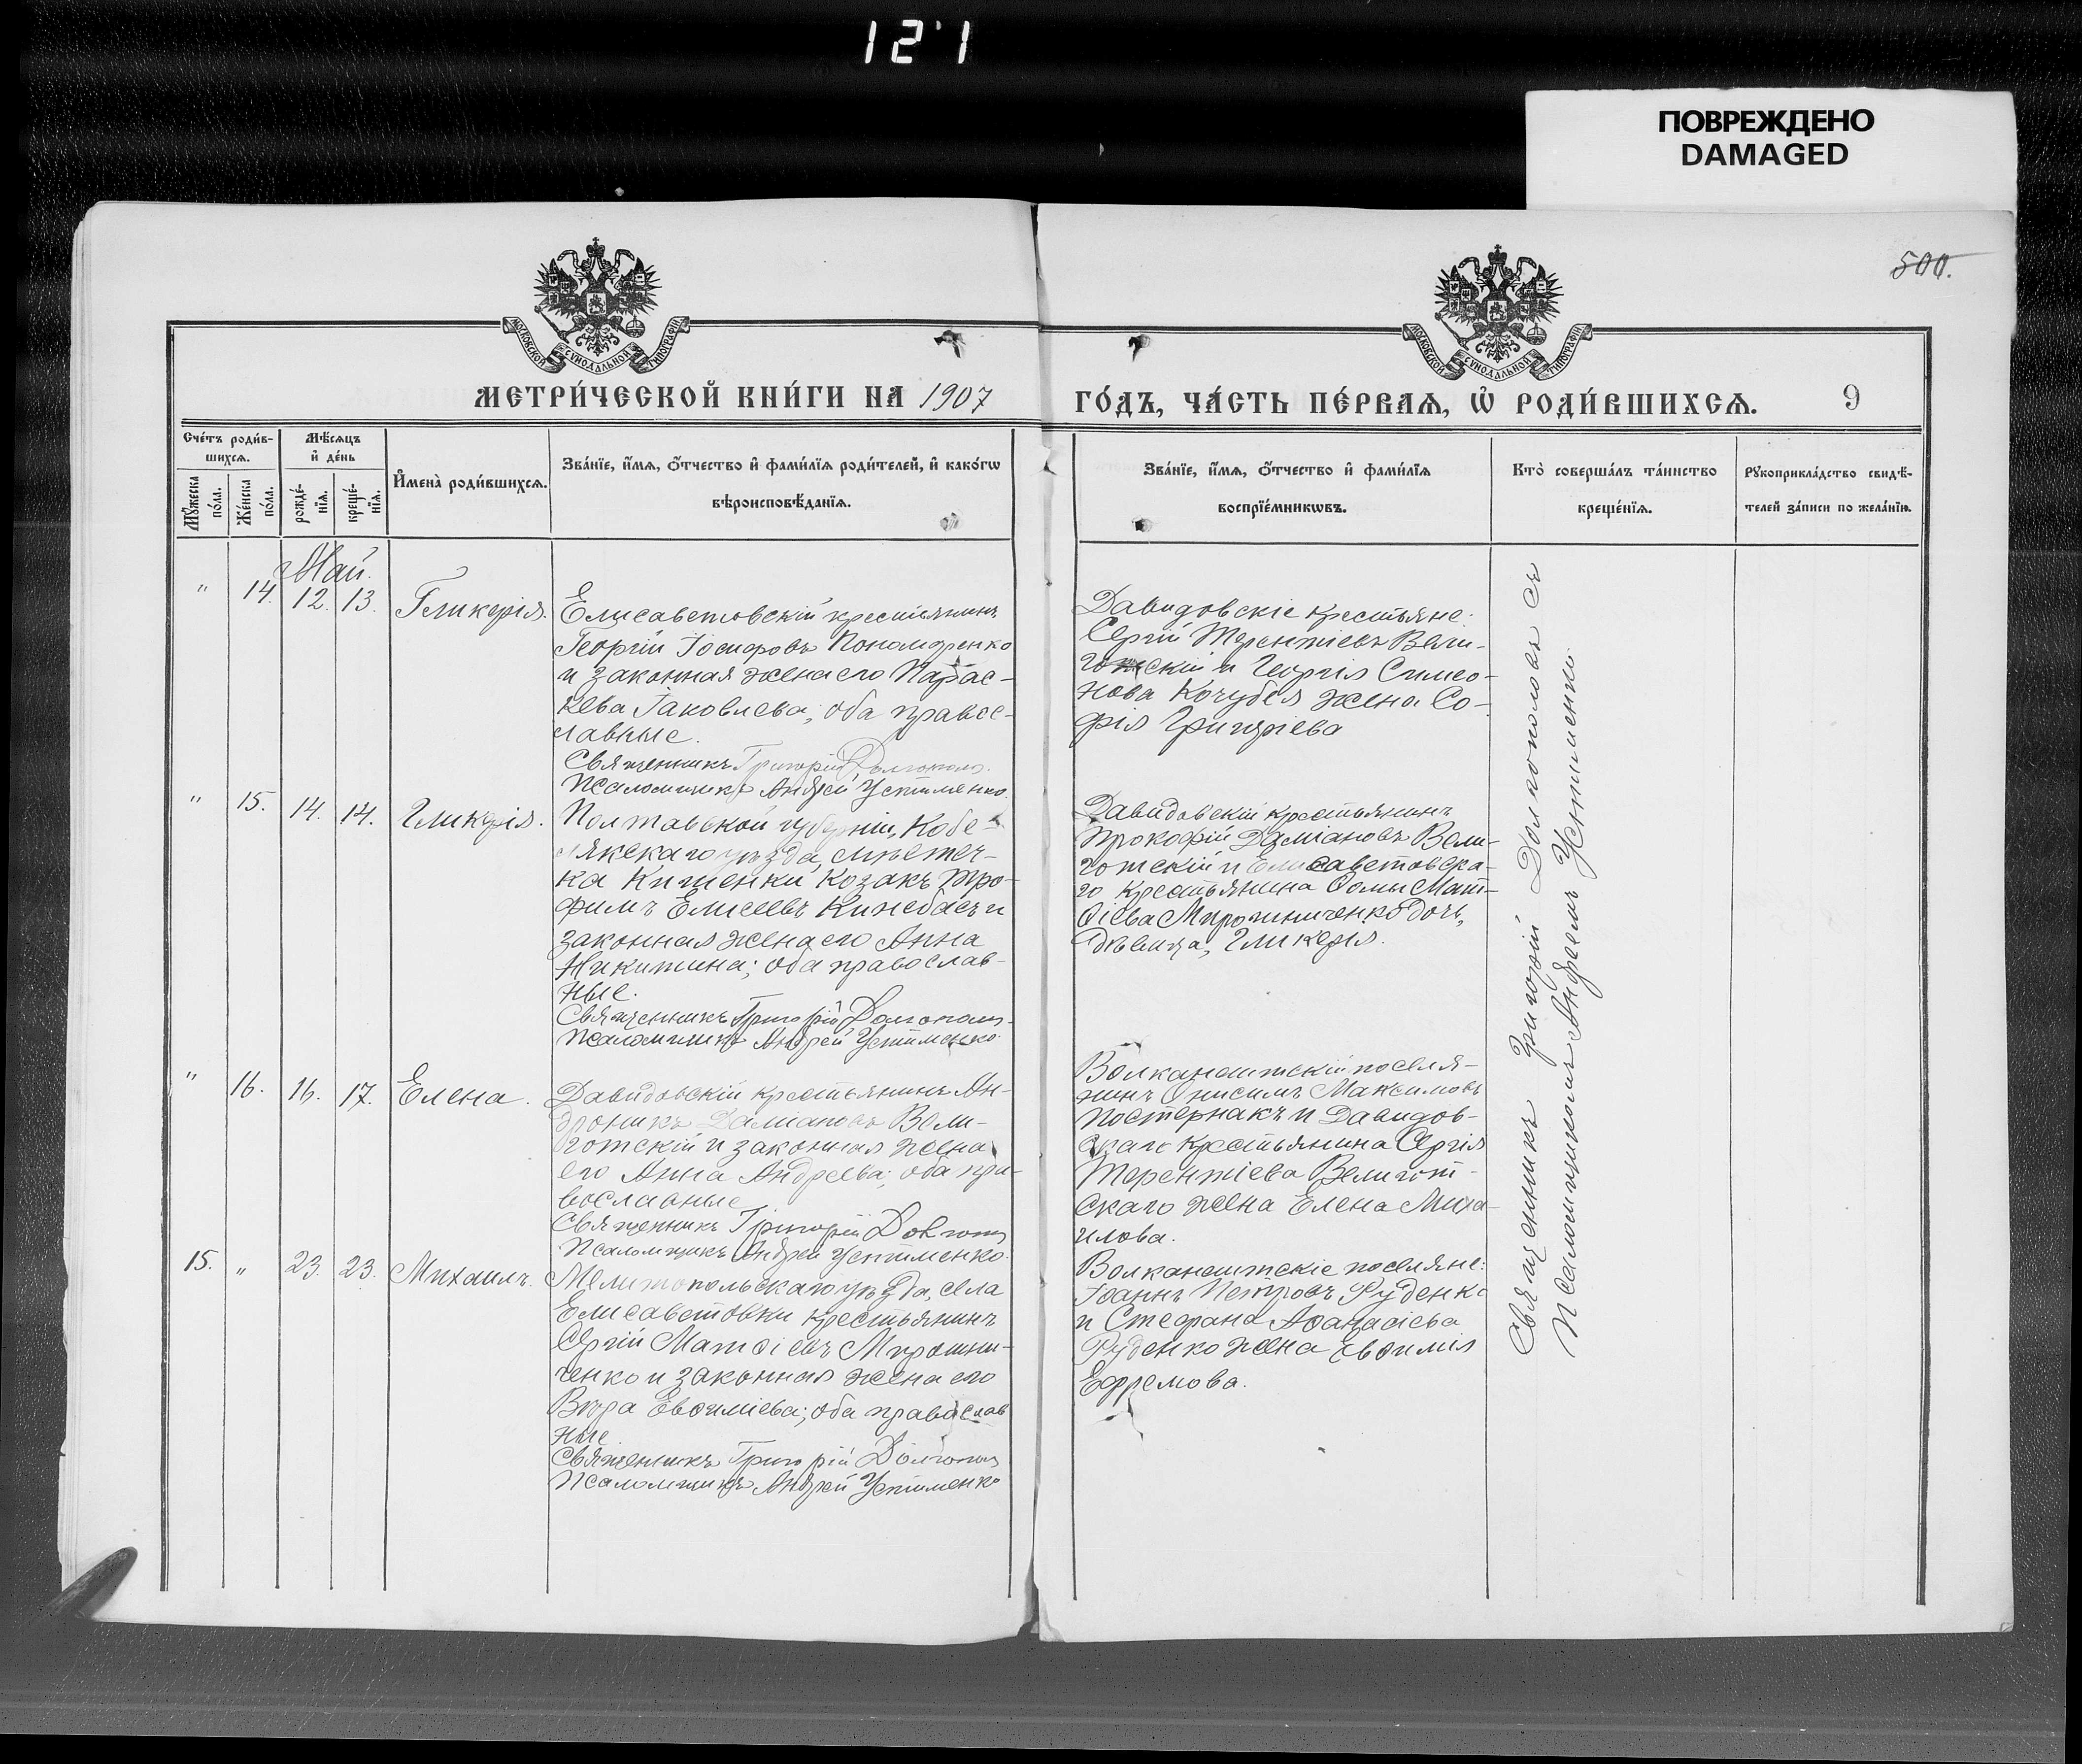 121
ПОВРЕЖДЕНО
DAMAGED
500.
МОСКОВСКОЙ СУНОДАЛЬНОЙ ТИПОГРАФІИ
МОСКОВСКОЙ СУНОДАЛЬНОЙ ТИПОГРАФІИ
МЕТРИ́ЧЕСКОЙ КНИ́ГИ НА 1907
ГО́ДЪ, ЧА́СТЬ ПЕ́РВАѦ, Ѡ҆ РОДИ́ВШИХСѦ. 9
Сче́тъ роди́в-
шихсѧ.
Мꙋ́жеска
по́ла.
Же́нска
по́ла.
Мѣ́сѧцъ
и҆ де́нь
рожде́-
нїѧ.
креще́-
нїѧ.
И҆мена̀ роди́вшихсѧ.
Зва́нїе, и҆́мѧ, ѻ҆́тчество и҆ фами́лїѧ роди́телей, и҆ како́гѡ
вѣроисповѣ́данїѧ.
Зва́нїе, и҆́мѧ, ѻ҆́тчество и҆ фами́лїѧ
воспрїе́мникѡвъ.
Кто̀ соверша́лъ та́инство
креще́нїѧ.
Рꙋкоприкла́дство свидѣ́-
телей за́писи по жела́нїю.
Май.
" 14. 12. 13. Гликерія.
Елисаветовскій крестьянинъ
Георгій Іосифовъ Пономаренко
и законная жена его Парас-
кева Іаковлева; оба правос-
лавные.
Священникъ Григорій Долгополъ.
Псаломщикъ Андрей Устименко.
Давидовскіе крестьяне:
Сергій Терентіевъ Вели-
готскій и Георгія Симео-
нова Кочубея жена Со-
фія Григоріева
" 15. 14. 14. Гликерія.
Полтавской губерніи, Кобе-
лякскаго уѣзда, мѣстеч-
ка Кишенки козакъ Тро-
фимъ Елисеевъ Кижебаевъ и
законная жена его Анна
Никитина; оба православ-
ные.
Священникъ Григорій Долгополъ.
Псаломщикъ Андрей Устименко.
Давидовскій крестьянинъ
Прокофій Даміановъ Вели-
готскій и Елисаветовска-
го крестьянина Ѳомы Мат-
ѳіева Мирошниченко дочь,
дѣвица, Гликерія.
" 16. 16. 17. Елена.
Давидовскій крестьянинъ Ан-
дроникъ Даміановъ Вели-
готскій и законная жена
его Анна Андреева; оба пра-
вославные
Священникъ Григорій Долгополъ
Псаломщикъ Андрей Устименко.
Волканештскій поселя-
нинъ Онисимъ Максимовъ
Постернакъ и Давидов-
скаго крестьянина Сергія
Терентіева Велигот-
скаго жена Елена Миха-
илова.
15. " 23. 23. Михаилъ.
Мелитопольскаго уѣзда, села
Елисаветовки крестьянинъ
Сергій Матѳіевъ Мирошни-
ченко и законная жена его
Вѣра Евѳиміева; оба православ
ные
Священникъ Григорій Долгополъ
Псаломщикъ Андрей Устименко
Волканештскіе поселяне:
Іоаннъ Петровъ Руденко
и Стефана Аѳанасіева
Руденко жена Евѳимія
Ефремова.
Священникъ Григорій Долгополовъ съ
Псаломщикомъ Андреемъ Устименко.